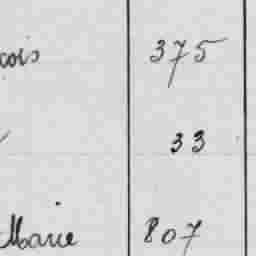 çois 375
33
Marie 807